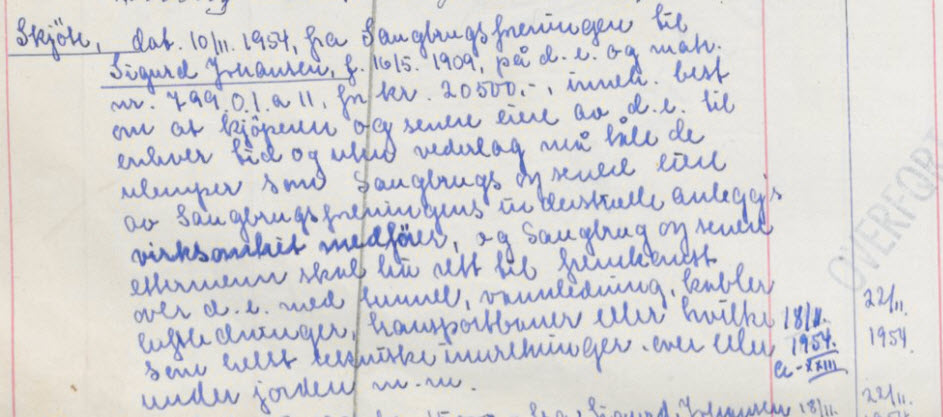 Skjöte, dat. 10/11. 1954, fra Saugbrugsforeningen til
Sigurd Johansen, f. 16/5. 1909, på d. e. og matr.
nr. 799.0.1.a 11, for kr. 20500,-, inneh. best
om at kjöperen og senere eiere av d. e. til
enhver tid og uten vederlag må tåle de
ulemper som Saugbrugs og senere eiere
av Saugbrugsforeningens industrielle anleggs
virksomhet medförer, og Saugbrug og senere
ettermenn skal ha rett til fremkomst
over d. e. med tunnel, vannledning, kabler
luftledninger, transportbaner eller hvilke
som helst tekniske innretninger over eller
under jorden m. m.
18/11.
1954.
XXIII
22/11.
1954.
OVERFØRT
Sigurd Johansen 18/11.
22/11.